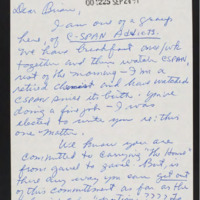 Dear Brian,
I am one of a group
here, of C-SPAN Addicts.
We have breakfast
together and then watch CSPAN,
rest of the morning - I'm a
retired chemist and have watched
CSPAN since its birth. You're
doing a fine job - I was
elected to write you re: this
one "Matter."
We know you are
committed to carrying "The House"
from gavel to gavel. But, is
there any way you can get out
of this commitment as far as the
????